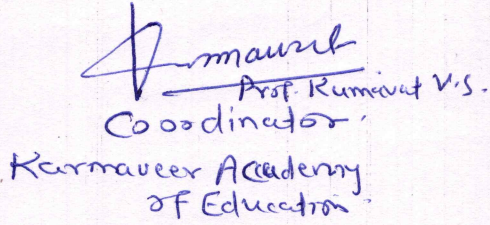 Kumavat
Prof. Kumavat V.S.
Cooordinator.
Karmaveer Academy
of Education.